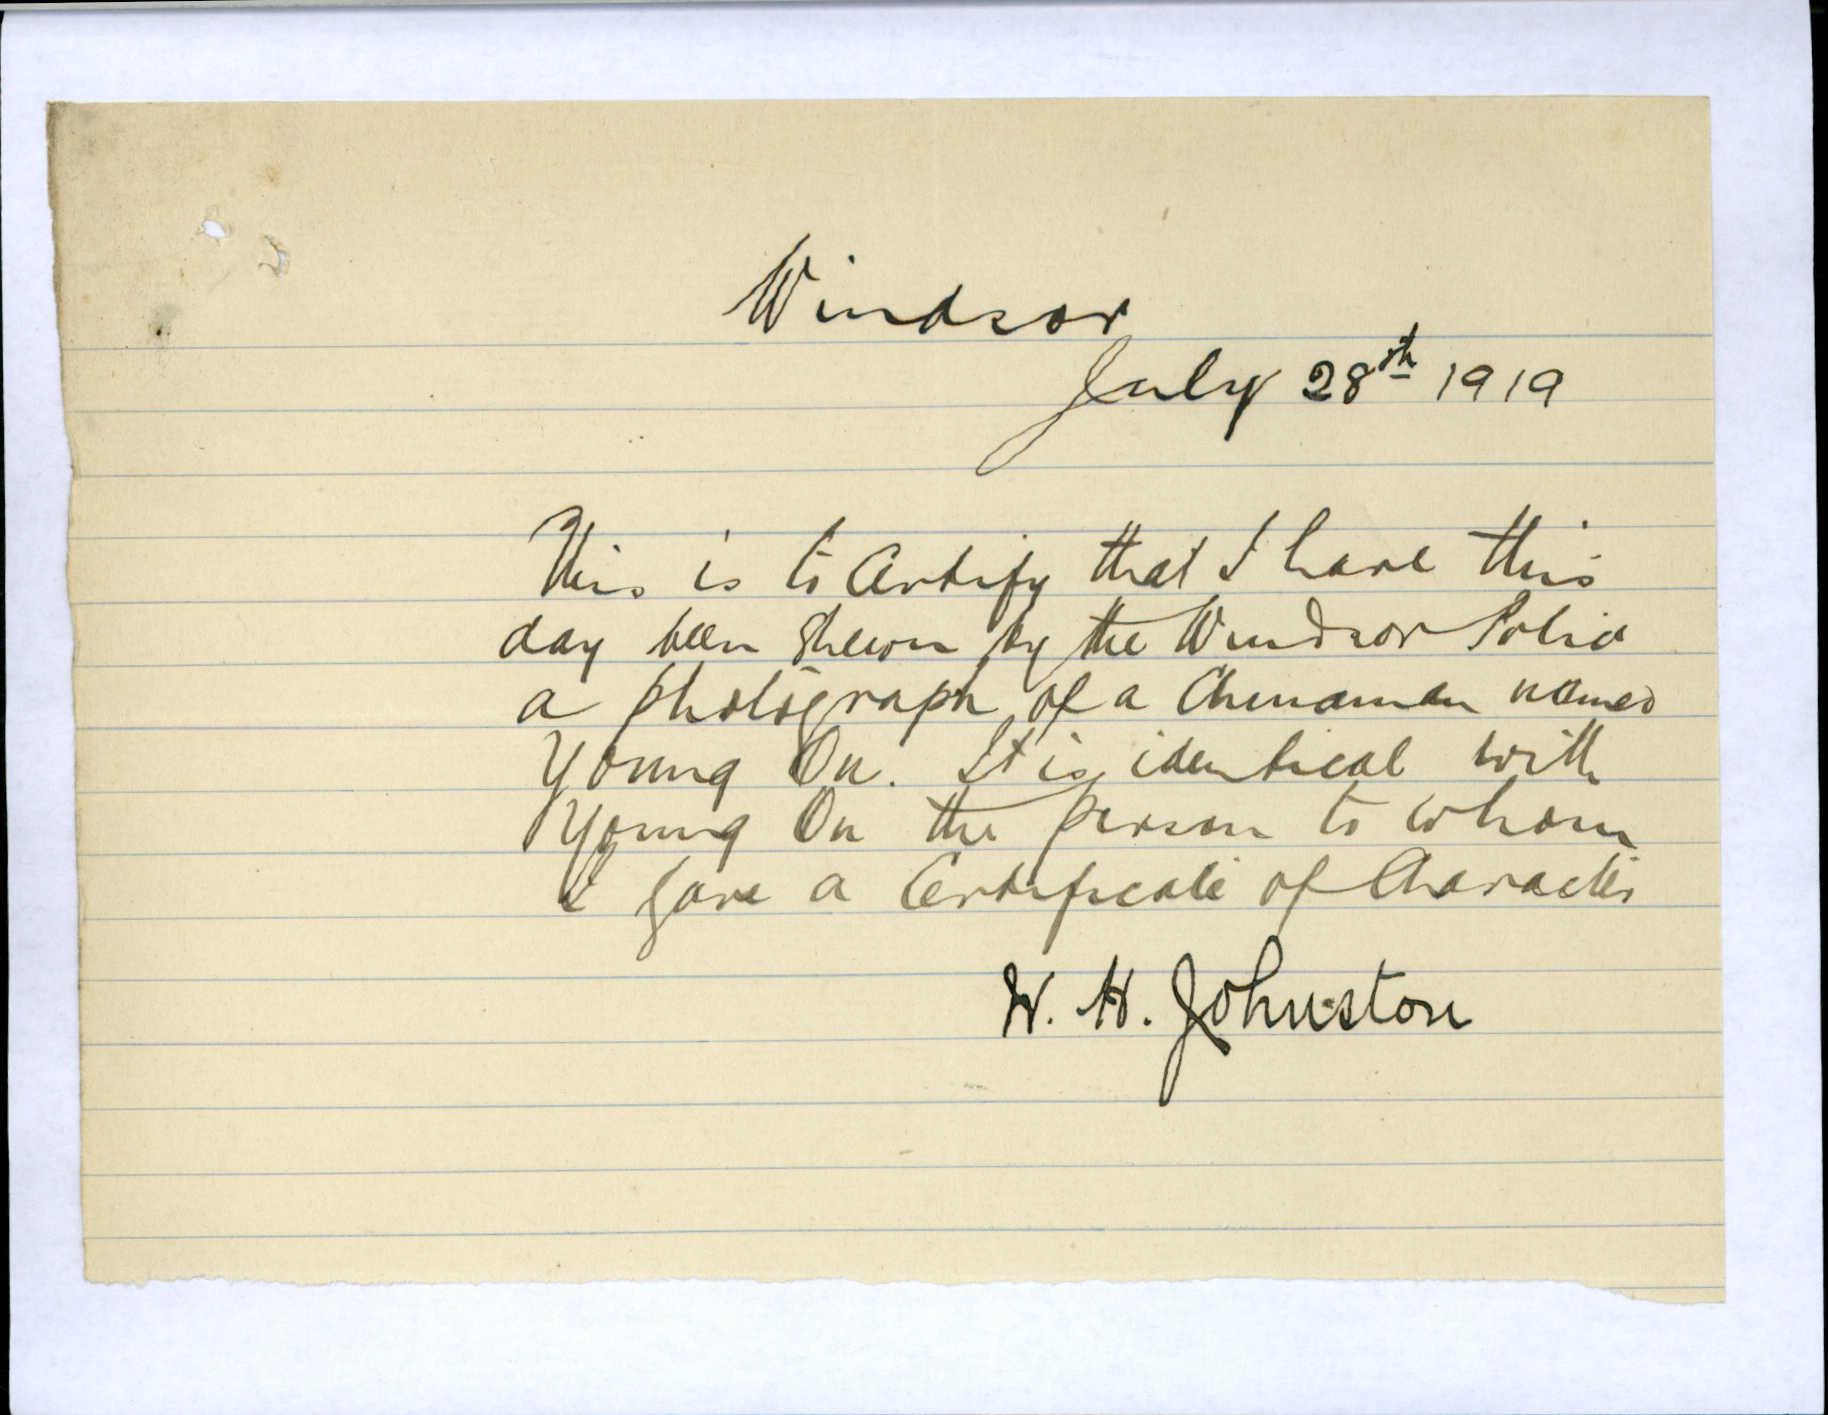 Windsor
July 28th 1919
This is to Certify that I have this
day been shewn by the Windsor Police
a photograph of a Chinaman named
Young On. It is identical with
Young On the person to whom
I gave a Certificate of Character
W. H. Johnston